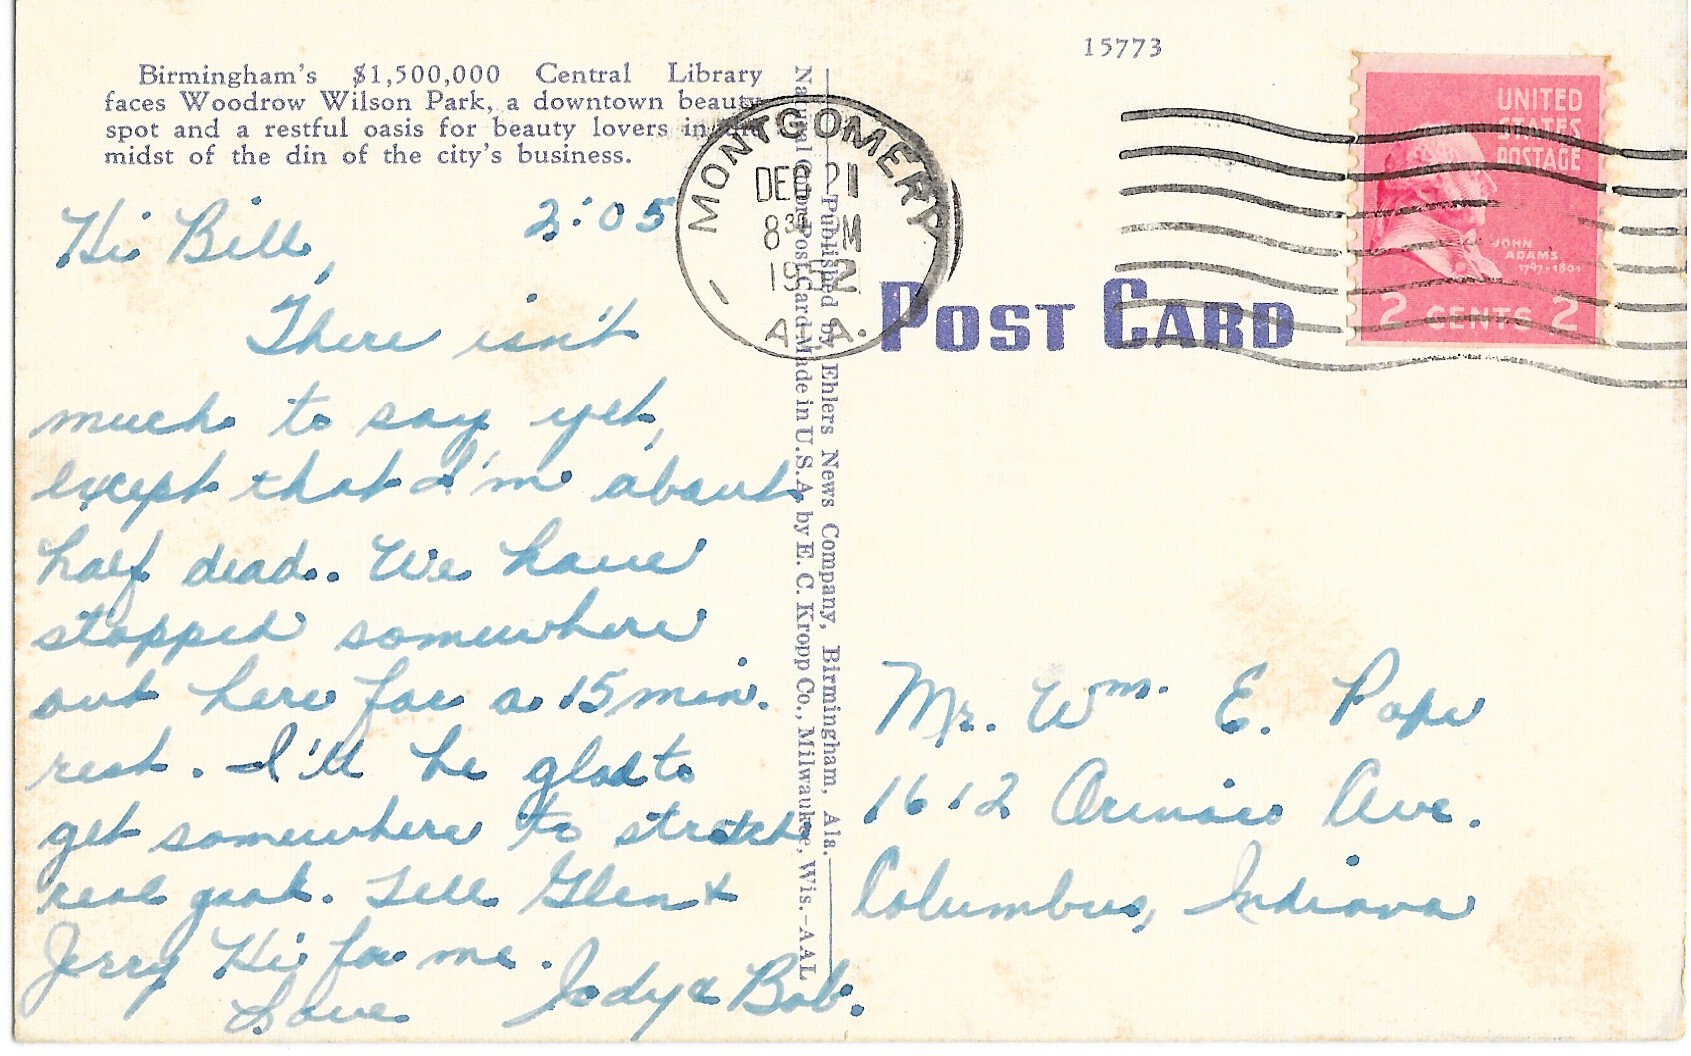 15773
Birmingham's $1,500,000 Central Library
faces Woodrow Wilson Park, a downtown beauty
spot and a restful oasis for beauty lovers in the
midst of the din of the city's business.
2:05
Hi Bill,
There isn't
much to say yet,
except that I'm about
half dead. We have
stopped somewhere
out here for a 15 min.
rest. I'll be glad to
get somewhere to stretch
real good. Tell Glen &
Jerry Hi for me.
Love Jody & Bob.
Published by Ehlers News Company, Birmingham, Ala.
Natural Color Post Card—Made in U.S.A. by E. C. Kropp Co., Milwaukee, Wis.—AAL
MONTGOMERY
DEC 21
8 30 M
1952
ALA.
POST CARD
UNITED
STATES
POSTAGE
JOHN
ADAMS
1797-1801
2 CENTS 2
Mr. Wm. E. Pope
1612 Ave.
Columbus, Indiana